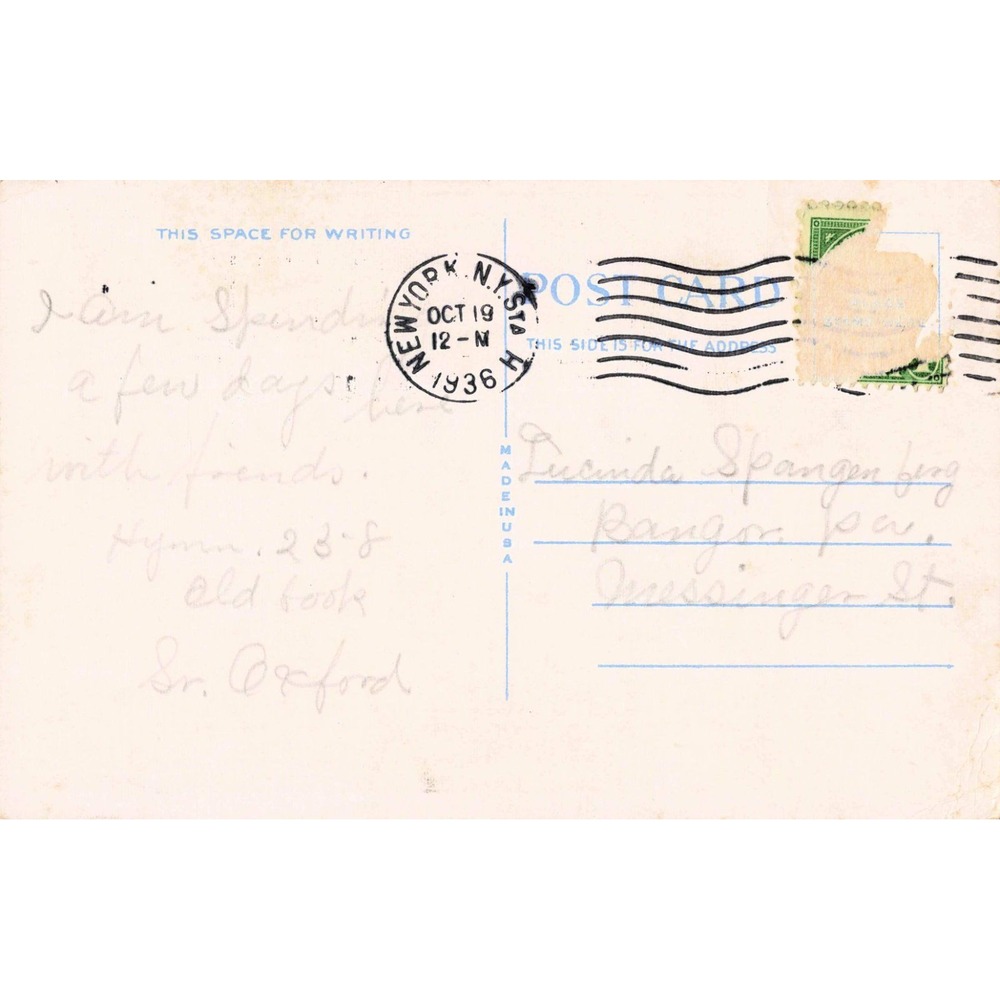 THIS SPACE FOR WRITING
I am Spending
a few days here
with friends.
Hymn. 238
Old book
Sr. Oxford
NEW YORK, N.Y. STA H
OCT 19
12-M
1936
POST CARD
THIS SIDE IS FOR THE ADDRESS
MADE IN USA
Lucinda Spangenberg
Bangor Pa.
Messinger St.